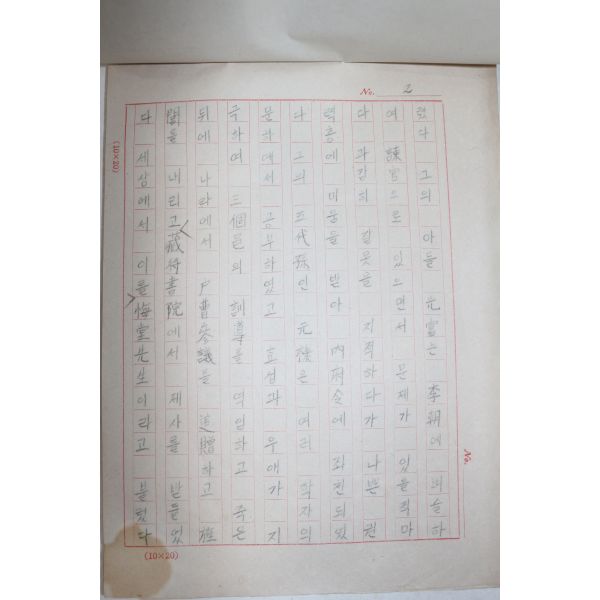 No. 2
렀다 그의 아들 元富는 李朝에 벼슬하
여 諫官으로 있으면서 문제가 있을 적마
다 과감히 잘못을 지적하다가 나쁜 권
력층에 미움을 받아 內府令에 좌천되었
다 그의 五代孫인 元 은 여러 학자의
문하에서 공부하였고 효성과 우애가 지
극하여 三個邑의 訓導를 역임하고 죽은
뒤에 나라에서 戶曹參議를 追贈하고 旌
閭를 내리고 藏待書院에서 제사를 받들었
다 세상에서 이를 悔堂先生이라고 불렀다
(10×20)
No.
(10×20)